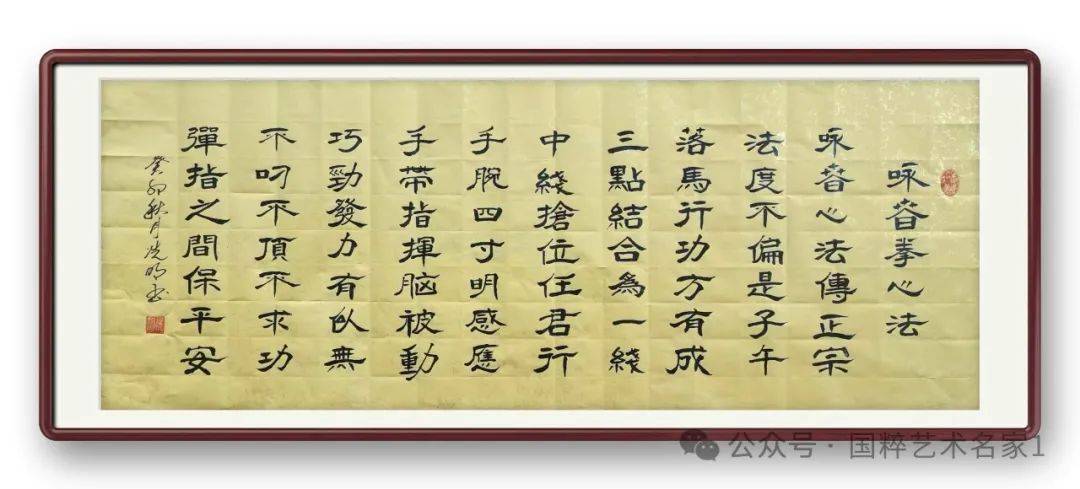 咏春拳心法
咏春心法傳正宗
法度不偏是子午
落馬行功方有成
三點結合為一綫
中綫搶位任君行
手腕四寸明感應
手帶指揮脑被動
巧勁發力有似無
不叼不頂不求功
彈指之間保平安
癸卯秋月
公众号 · 国粹艺术名家1